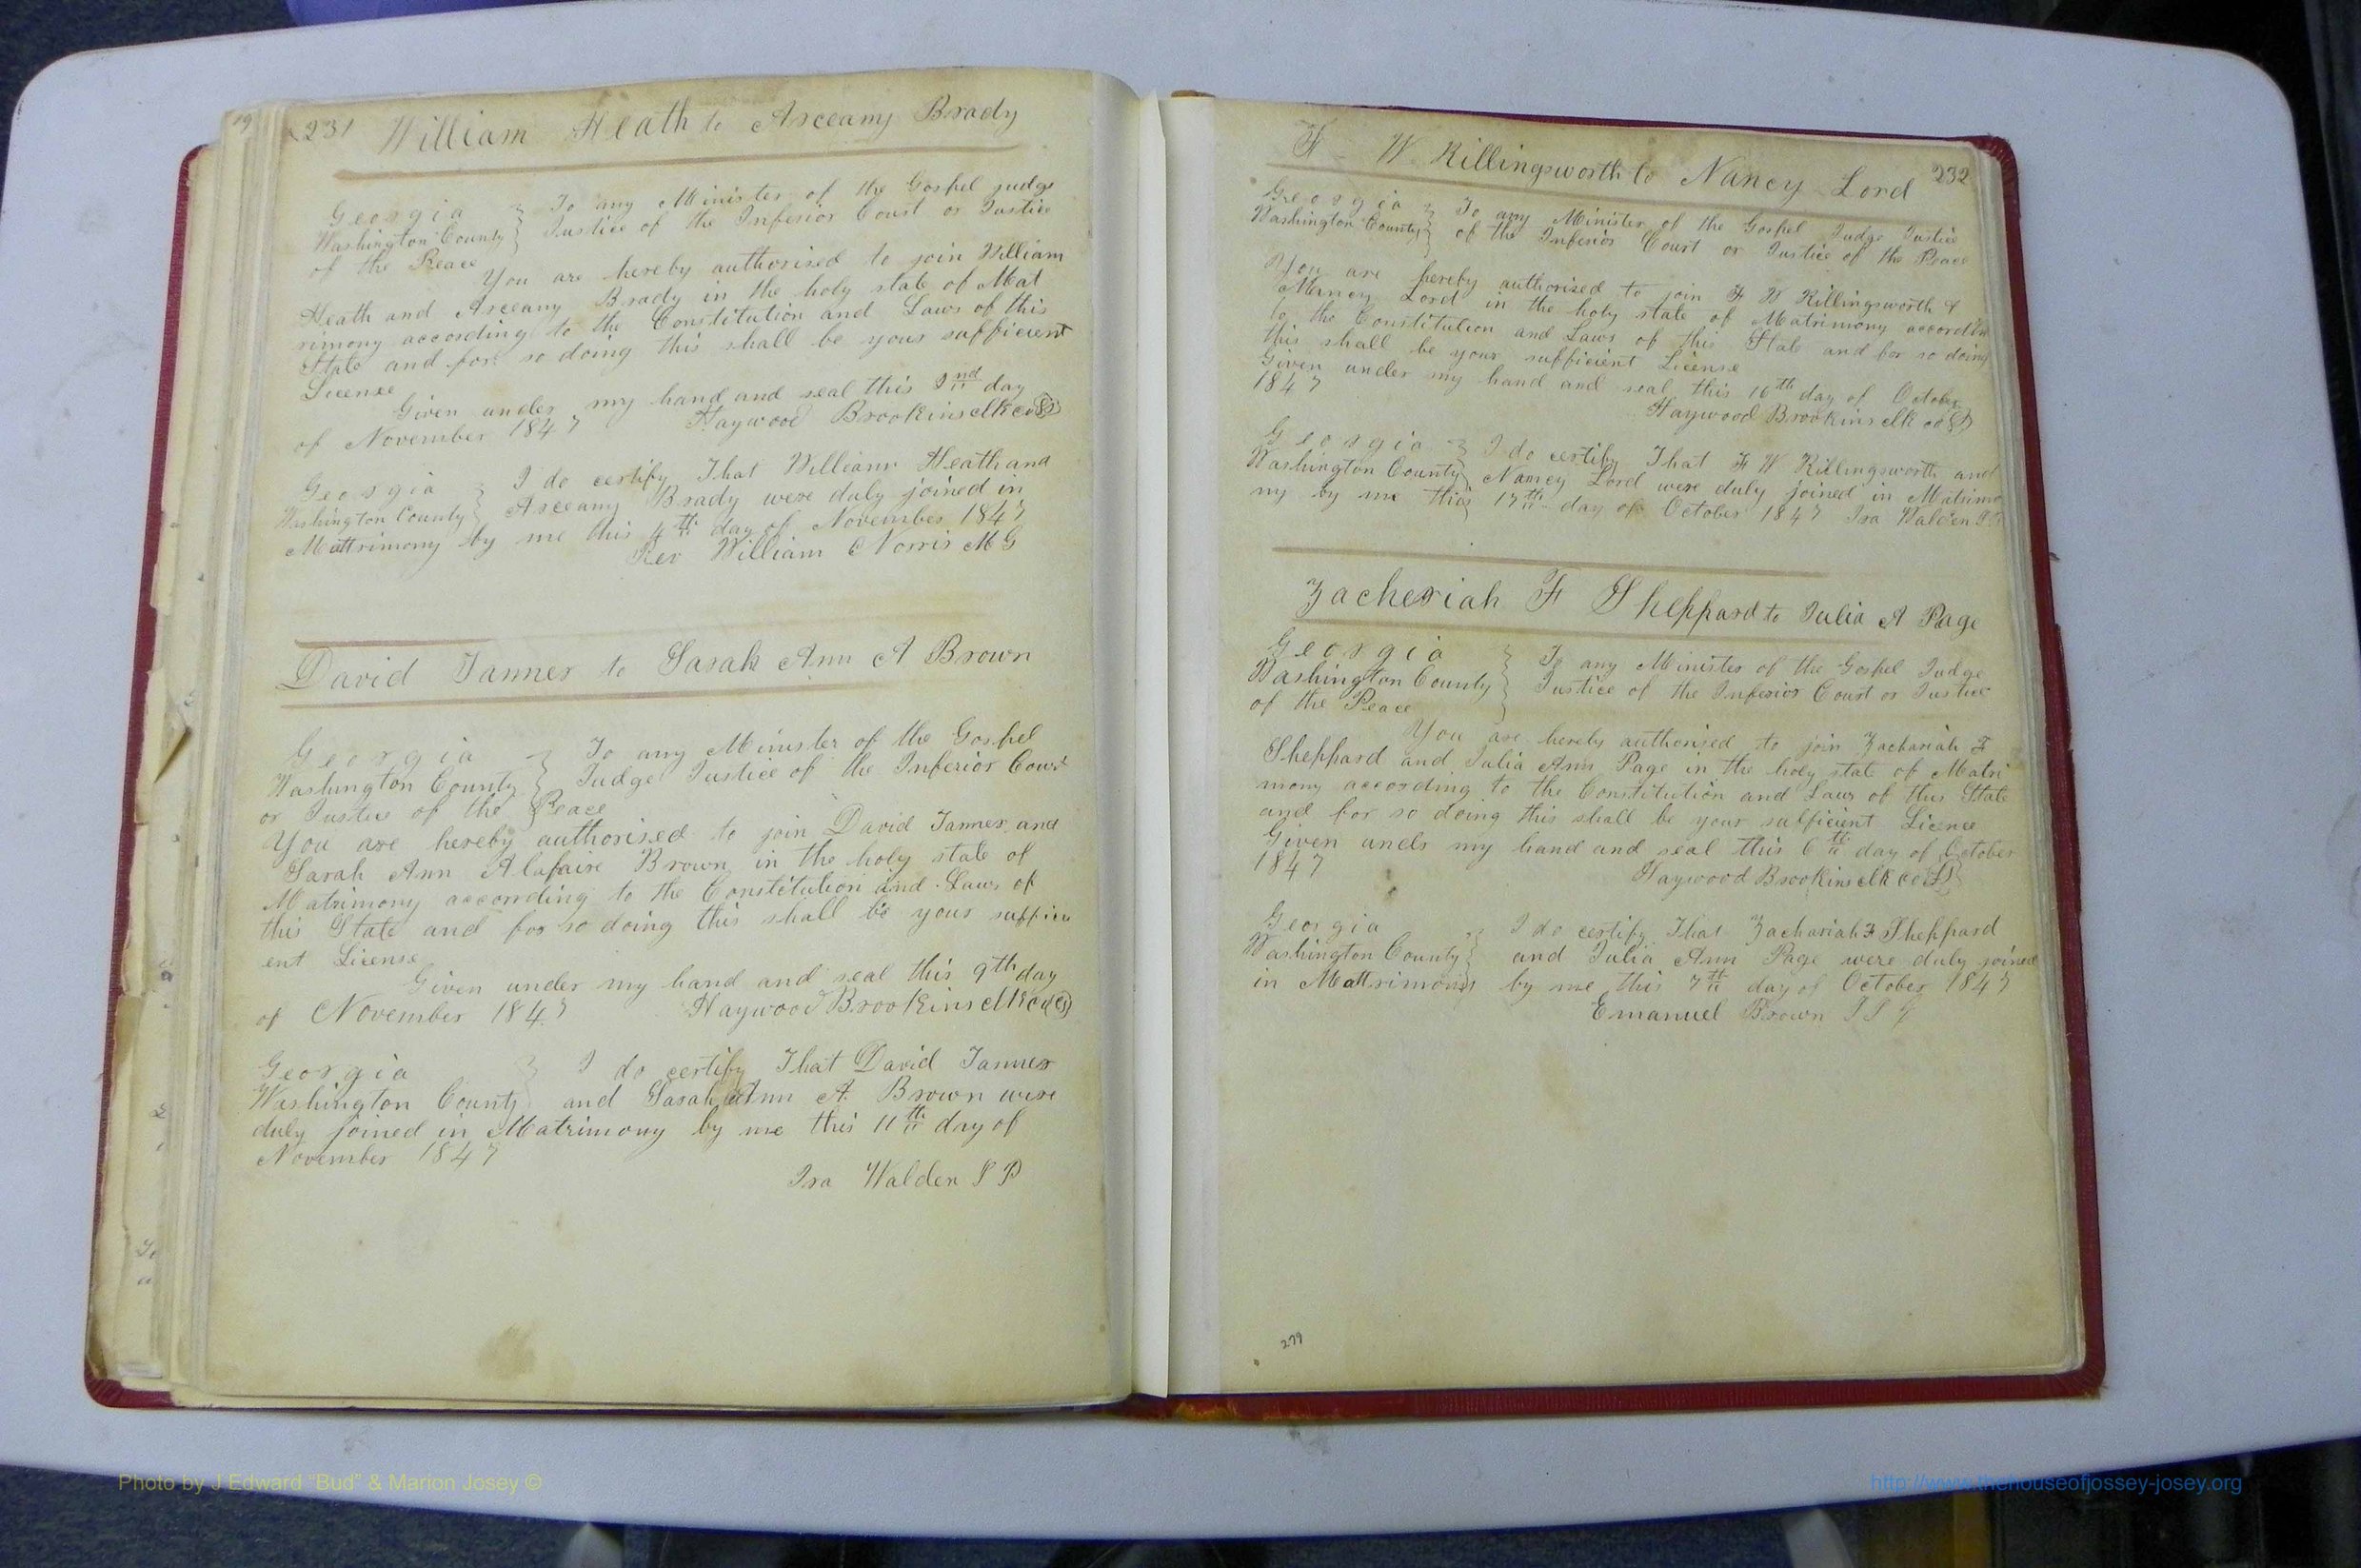 19
231 William Heath to Asceamy Brady
Georgia } To any Minister of the Gospel judge
Washington County } Justice of the Inferior Court or Justice
of the Peace
You are hereby authorised to join William
Heath and Asceamy Brady in the holy state of Mat
rimony according to the Constitution and Laws of this
State and for so doing this shall be your sufficient
License
Given under my hand and seal this 2nd day
of November 1847 Haywood Brookins clk co
Georgia } I do certify That William Heath and
Washington County } Asceamy Brady were duly joined in
Mattrimony by me this 4th day of November 1847
Rev William Norris M G
David Tanner to Sarah Ann A Brown
Georgia } To any Minister of the Gospel
Washington County } Judge Justice of the Inferior Court
or Justice of the Peace
You are hereby authorised to join David Tanner and
Sarah Ann Alafaire Brown in the holy state of
Matrimony according to the Constitution and Laws of
this State and for so doing this shall be your suffici
ent License
Given under my hand and seal this 9th day
of November 1847 Haywood Brookins clk co
Georgia } I do certify That David Tanner
Washington County } and Sarah Ann A. Brown were
duly joined in Matrimony by me this 11th day of
November 1847
Ira Walden J P
F W Killingsworth to Nancy Lord 232
Georgia } To any Minister of the Gospel Judge Justice
Washington County } of the Inferior Court or Justice of the Peace
You are hereby authorised to join F W Killingsworth &
Nancy Lord in the holy state of Matrimony according
to the Constitution and Laws of this State and for so doing
this shall be your sufficient License
Given under my hand and seal this 16th day of October
1847
Haywood Brookins clk co
Georgia } I do certify That F W Killingsworth and
Washington County } Nancy Lord were duly joined in Matrimo
ny by me this 17th day of October 1847 Ira Walden
Zacheriah F Sheppard to Julia A Page
Georgia } To any Minister of the Gospel Judge
Washington County } Justice of the Inferior Court or Justice
of the Peace
You are hereby authorised to join Zachariah F
Sheppard and Julia Ann Page in the holy state of Matri
mony according to the Constitution and Laws of this State
and for so doing this shall be your sufficient License
Given under my hand and seal this 6th day of October
1847 Haywood Brookins clk co
Georgia } I do certify That Zachariah F Sheppard
Washington County } and Julia Ann Page were duly joined
in Mattrimony by me this 7th day of October 1847
Emanuel Brown
279
Photo by J Edward “Bud” & Marion Josey ©
http://www.thehouseofjossey-josey.org